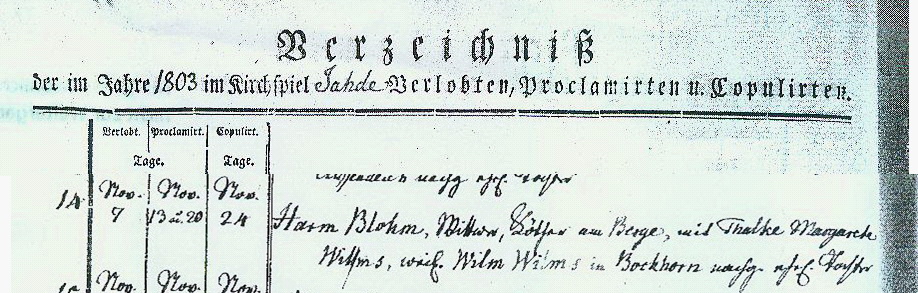 Verzeichniß
der im Jahre 1803 im Kirchspiel Jahde Verlobten, Proclamirten u. Copulirten.
Verlobt. Proclamirt. Copulirt.
Tage. Tage.
nachg. ehel. Tochter
14 Nov. Nov. Nov.
7 13 u. 20 24 Harm Blohm, Wittwer, Köther am Berge, mit Thalke Margarete
Wilhms, weil. Wilm Wilms in Bockhorn nachg. ehel. Tochter
Nov. Nov. Nov.